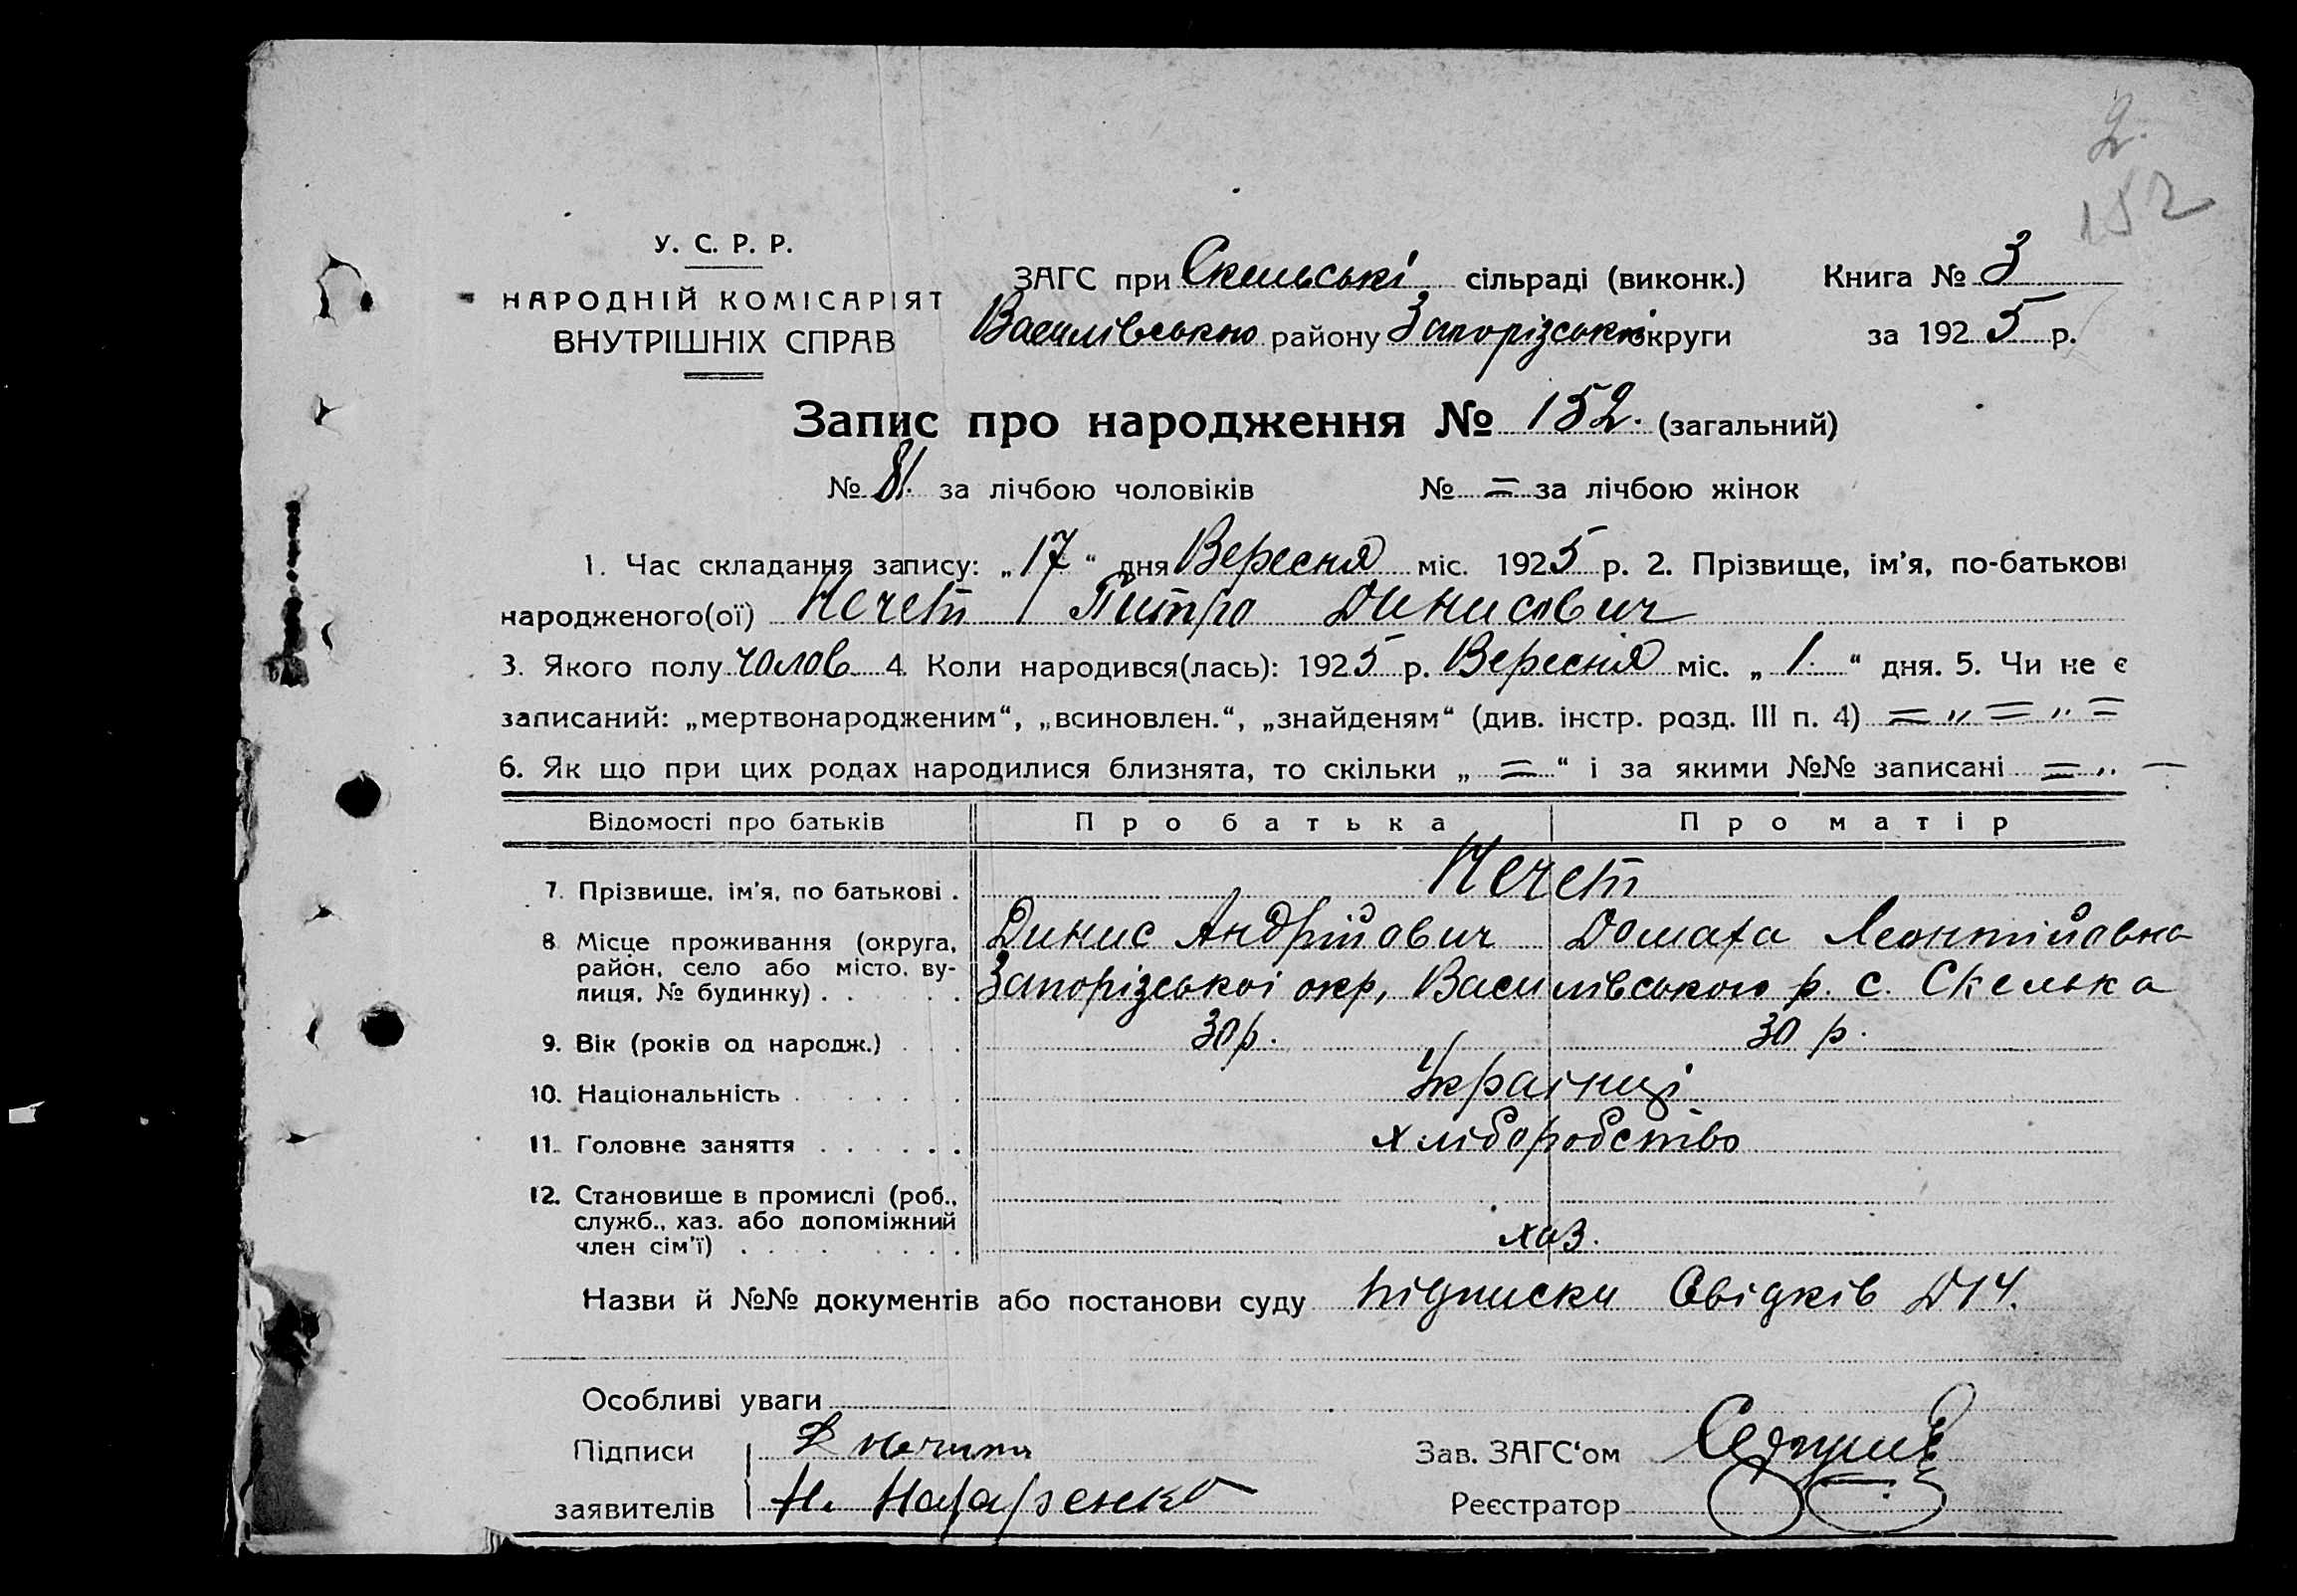 2.
152
У. С. Р. Р.
НАРОДНІЙ КОМІСАРІЯТ
ВНУТРІШНІХ СПРАВ
ЗАГС при Скельські сільраді (виконк.) Книга № 3
Василівською району Запорізської округи за 1925 р.
Запис про народження № 152. (загальний)
№ 81. за лічбою чоловіків № = за лічбою жінок
1. Час складання запису: „17“ дня Вересня міс. 1925 р. 2. Прізвище, ім’я, по-батькові
народженого(ої) Нечет Питро Динисович
3. Якого полу чолов 4. Коли народився(лась): 1925 р. Вересня міс. „1.“ дня. 5. Чи не є
записаний: „мертвонародженим“, „всиновлен.“, „знайденям“ (див. інстр. розд. III п. 4) = „ = „ =
6. Як що при цих родах народилися близнята, то скільки „ = “ і за якими №№ записані = „ —
Відомості про батьків Про батька Про матір
7. Прізвище, ім’я, по батькові . Нечет
8 Місце проживання (округа, Динис Андрійович Домаха Леонтійовна
район, село або місто, ву-
лиця, № будинку) . . . . . Запорізської окр, Василівською р. с. Скелька
9. Вік (років од народж.) . . . 30 р. 30 р.
10. Національність . . . . . . Українці
11. Головне заняття . . . . . . хліборобство
12. Становище в промислі (роб.,
служб., хаз. або допоміжний
член сім’ї) . . . . . . . . хаз.
Назви й №№ документів або постанови суду підписки Свідків
Особливі уваги
Підписи Зав. ЗАГС‘ом
заявителів Н. Назаренко Реєстратор